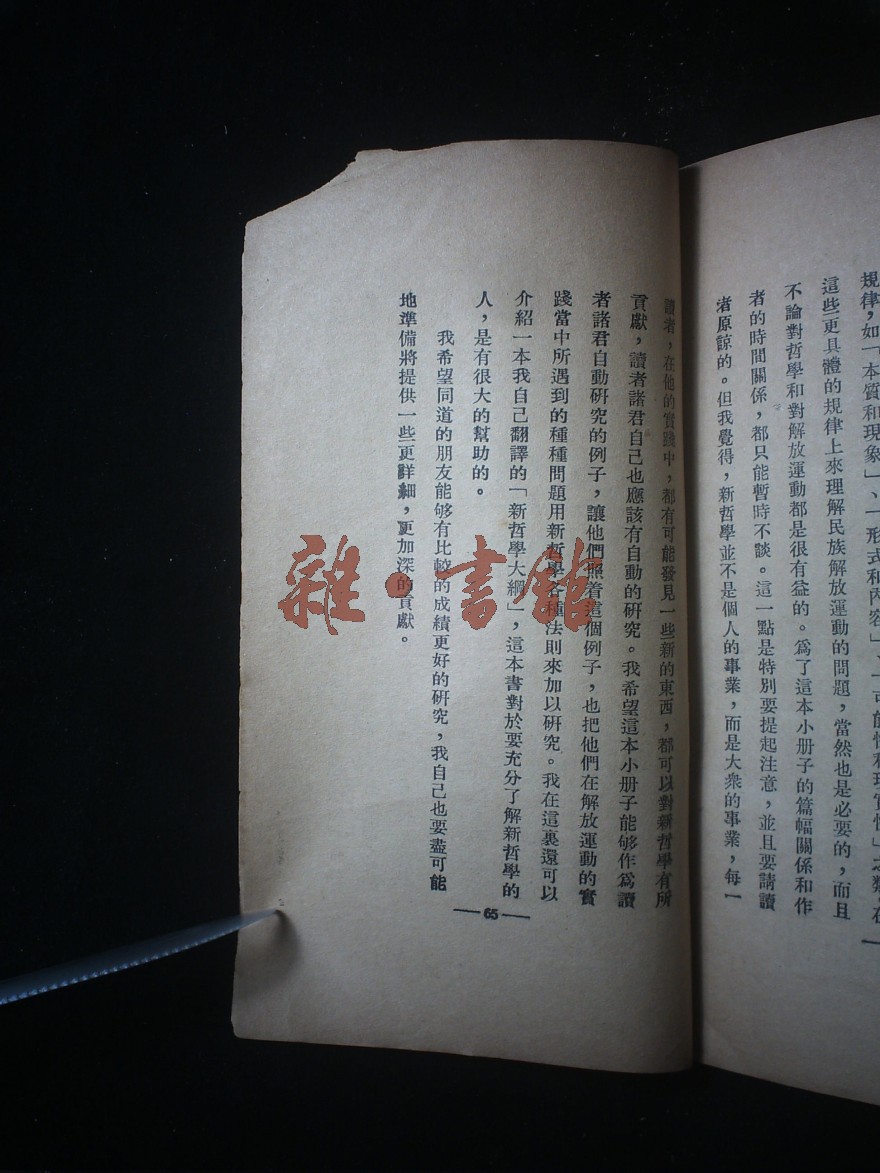 規律，如「本質和現象」、「形式和內容」、「可能性和現實性」之類。在
這些更具體的規律上來理解民族解放運動的問題，當然也是必要的，而且
不論對哲學和對解放運動都是很有益的。爲了這本小册子的篇幅關係和作
者的時間關係，都只能暫時不談。這一點是特別要提起注意，並且要請讀
者原諒的。但我覺得，新哲學並不是個人的事業，而是大衆的事業，每一
讀者，在他的實踐中，都有可能發見一些新的東西，都可以對新哲學有所
貢獻，讀者諸君自己也應該有自動的研究。我希望這本小册子能够作爲讀
者諸君自動研究的例子，讓他們照着這個例子，也把他們在解放運動的實
踐當中所遇到的種種問題用新哲學各種法則來加以研究。我在這裏還可以
介紹一本我自己翻譯的「新哲學大綱」，這本書對於要充分了解新哲學的
人，是有很大的幫助的。
我希望同道的朋友能够有比較的成績更好的研究，我自己也要盡可能
地準備將提供一些更詳細，更加深的貢獻。
— 65 —
雜·書館